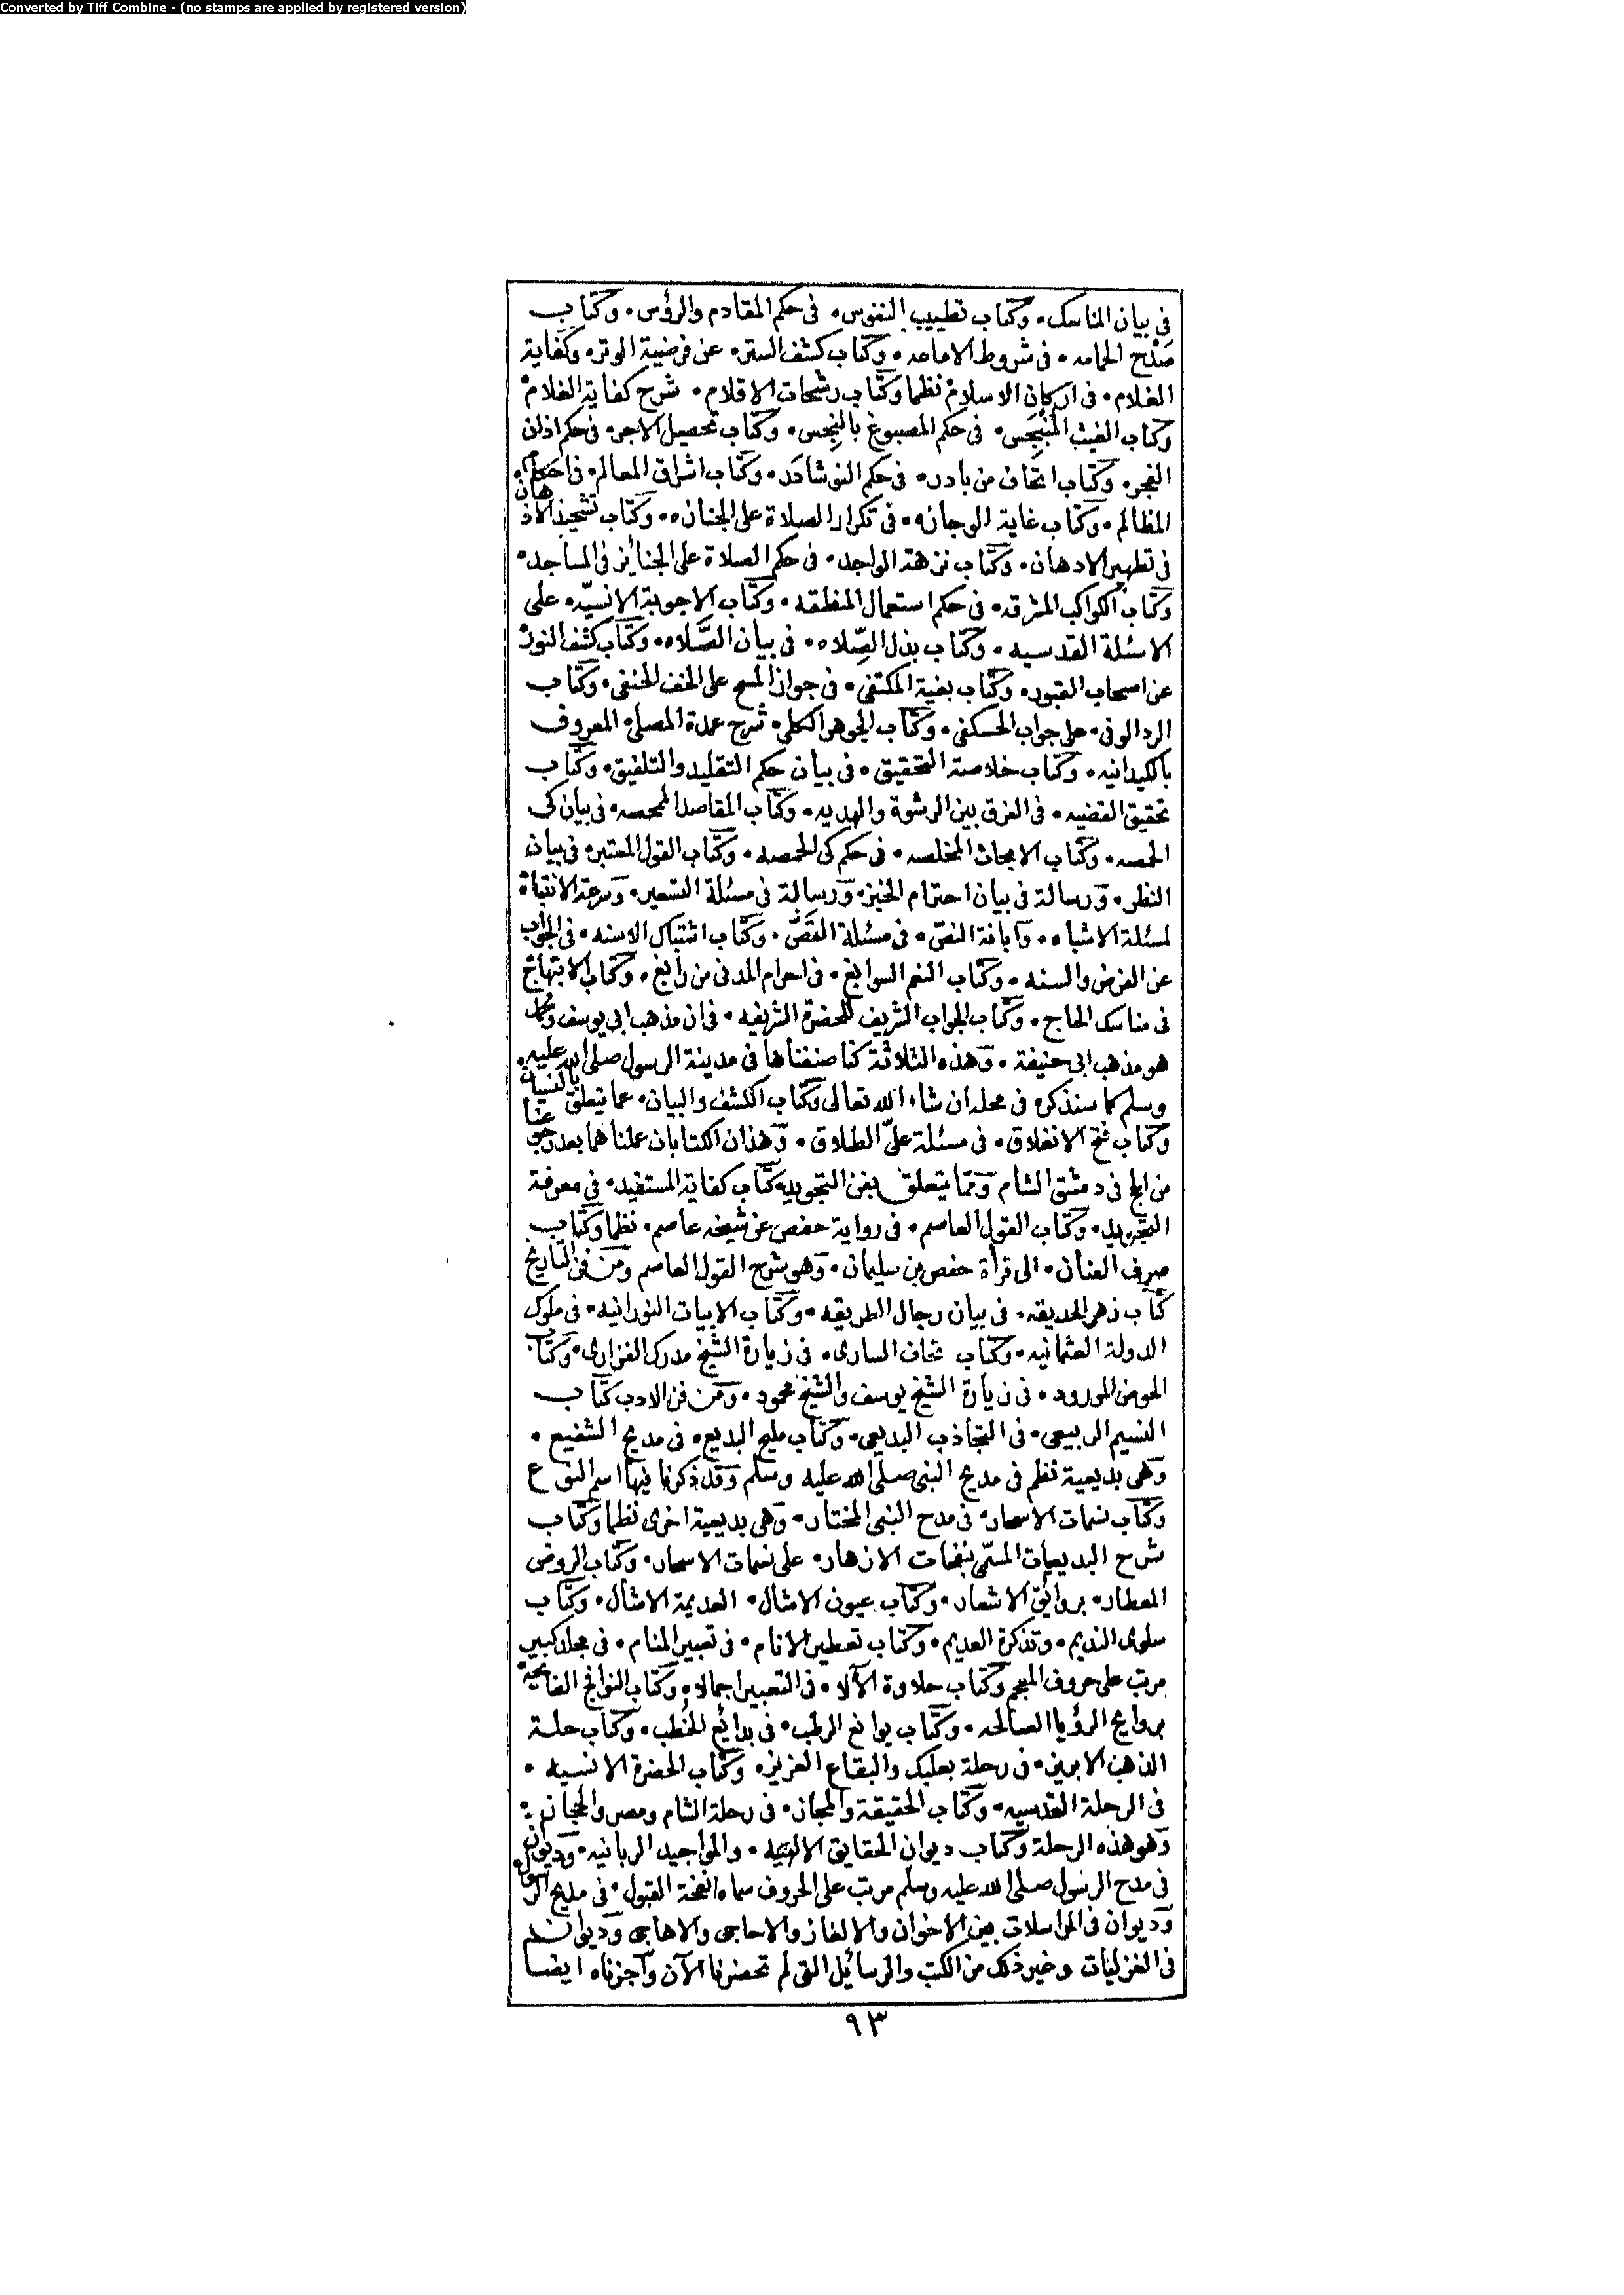 Converted by Tiff Combine - (no stamps are applied by registered version)
في بيان المناسك • وكتاب تطييب النفوس • في حكم المقادم والرؤس • وكتاب
صَدْح الحمامه • في شروط الامامه • وكتاب كشف الستر • عن فرضية الوتر • وكفاية
الغلام • في اركان الاسلام نظما وكتاب رشحات الاقلام • شرح كفاية الغلام
وكتاب الغيث المنْبَجِس • في حكم المصبوغ بالنجس • وكتاب تحصيل الاجر • في حكم اذان
الفجر • وكتاب اتحاف من بادر • في حكم النوشادر • وكتاب اشراق المعالم • في احكام
المظالم • وكتاب غاية الوجازه • في تكرار الصلاة على الجنازه • وكتاب تشحيذ الاذهان
في تطهير الادهان • وكتاب نزهة الواجد • في حكم الصلاة على الجنائز في المساجد •
وكتاب الكواكب المشرقه • في حكم استعمال المنطقه • وكتاب الاجوبة الانسيّه • على
الاسئلة القدسيه • وكتاب بذل الصِّلاه • في بيان الصَّلاه • وكتاب كشف النور
عن اصحاب القبور • وكتاب بغية المكتفي • في جواز المسح على الخف الحنفي • وكتاب
الرد الوفي • على جواب الحسكفي • وكتاب الجوهر الكلي • شرح عمدة المصلي • المعروف
بالكيدانيه • وكتاب خلاصة التحقيق • في بيان حكم التقليد والتلفيق • وكتاب
تحقيق القضيه • في الفرق بين الرشوة والهديه • وكتاب المقاصد الممحصه • في بيان كي
الحمصه • وكتاب الابحاث المخلصه • في حكم كي الحمصه • وكتاب القول المعتبر • في بيان
النظر • ورسالة في بيان احترام الخبز • ورسالة في مسئلة التسعير • وسرعة الانتباه
لمسئلة الاشباه • وابانة النصّ • في مسئلة القَصّ • وكتاب اشتباك الاسنه • في الجواب
عن الفرض والسنه • وكتاب النعم السوابغ • في احرام المدني من رابغ • وكتاب الابتهاج
في مناسك الحاج • وكتاب الجواب الشريف للحضرة الشريفه • في ان مذهب ابي يوسف ومحمد
هو مذهب ابي حنيفة • وهذه الثلاثة كنا صنفناها في مدينة الرسول صلى الله عليه
وسلم كما سنذكره في محله ان شاء الله تعالى وكتاب الكشف والبيان • عما يتعلق بالنسيان
وكتاب فتح الانغلاق • في مسئلة عليّ الطلاق • وهذان الكتابان عملناهما بعد رجوعنا
من الحج في دمشق الشام ومما يتعلق بفن التجويد كتاب كفاية المستفيد • في معرفة
التجويد • وكتاب القول العاصم • في رواية حفص عن شيخه عاصم • نظما وكتاب
صرف العنان • الى قرأة حفص بن سليمان • وهو شرح القول العاصم ومن فن التاريخ
كتاب زهر الحديقه • في بيان رجال الطريقه • وكتاب الابيات النورانيه • في ملوك
الدولة العثمانيه • وكتاب تحاف السارى • في زيارة الشيخ مدرك الفزارى • وكتاب
الحوض المورود • في زيارة الشيخ يوسف والشيخ محمود • ومن فن الادب كتاب
النسيم الربيعى • في التجاذب البديعى • وكتاب مليح البديع • في مديح الشفيع •
وهي بديعية نظم في مديح النبي صلى الله عليه وسلم وقد ذكرنا فيها اسم النوع
وكتاب نسمات الاسحار • في مدح النبي المختار • وهي بديعية اخرى نظما وكتاب
شرح البديعيات المسمى بنفحات الازهار • على نسمات الاسحار • وكتاب الروض
المعطار • بروائق الاشعار • وكتاب عيون الامثال • العديمة الامثال • وكتاب
سلوى النديم • وتذكرة العديم • وكتاب تعطير الانام • في تعبير المنام • في مجلد كبير
مرتب على حروف المعجم وكتاب حلاوة الآلا • في التعبير اجمالا • وكتاب النوافح الفائحة
بروايح الرؤيا الصالحه • وكتاب يوانع الرطب • في بدائع الخُطب • وكتاب حلة
الذهب الابريز • في رحلة بعلبك والبقاع العزيز • وكتاب الحضرة الانسيه •
في الرحلة القدسيه • وكتاب الحقيقة والمجاز • في رحلة الشام ومصر والحجاز •
وهو هذه الرحلة وكتاب ديوان الحقايق الالهيه • والمواجيد الربانيه • وديوان
في مدح الرسول صلى الله عليه وسلم مرتب على الحروف سماه نفحة القبول • في مديح الرسول
وديوان في المراسلات بين الاخوان والالغاز والاحاجي والاهاجي وديوان
في الغزليات وغير ذلك من الكتب والرسائل التي لم تحضرنا الآن وآجزناه ايضا
٩٣